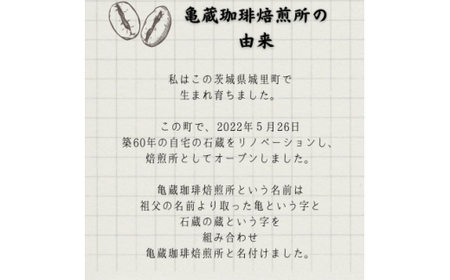 亀蔵珈琲焙煎所の
由来
私はこの茨城県城里町で
生まれ育ちました。
この町で、2022年５月26日
築60年の自宅の石蔵をリノベーションし、
焙煎所としてオープンしました。
亀蔵珈琲焙煎所という名前は
祖父の名前より取った亀という字と
石蔵の蔵という字を
組み合わせ
亀蔵珈琲焙煎所と名付けました。